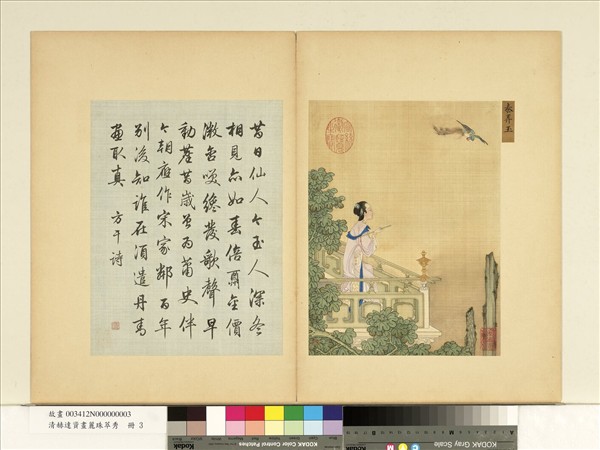 秦弄玉
昔日仙人今玉人深冬
相見亦如春倍酬金價
微含笑纔發歌聲早
動塵昔歲曾為蕭史伴
今朝應作宋家鄰百年
別後知誰在須遣丹青
畫取真 方干詩
故畫 003412N000000003
清赫達資畫麗珠萃秀 冊 3
Kodak Color Control Patches
KODAK Gray Scale